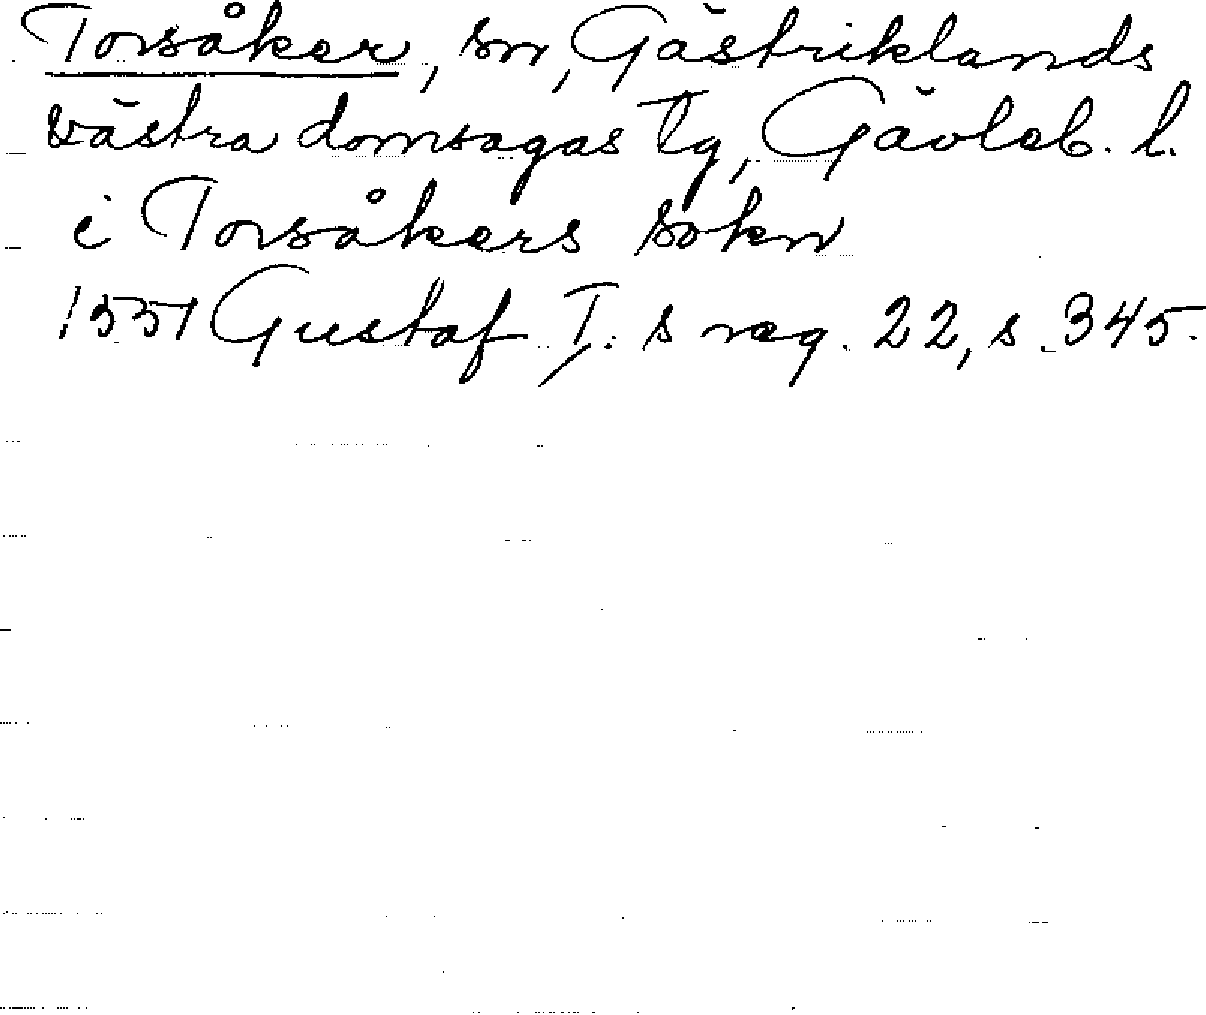 Torsåker, sn, Gästriklands
västra domsagas tg, Gävleb. l.
i Torsåkers sokn
1551 Gustaf I:s reg. 22, s. 345.